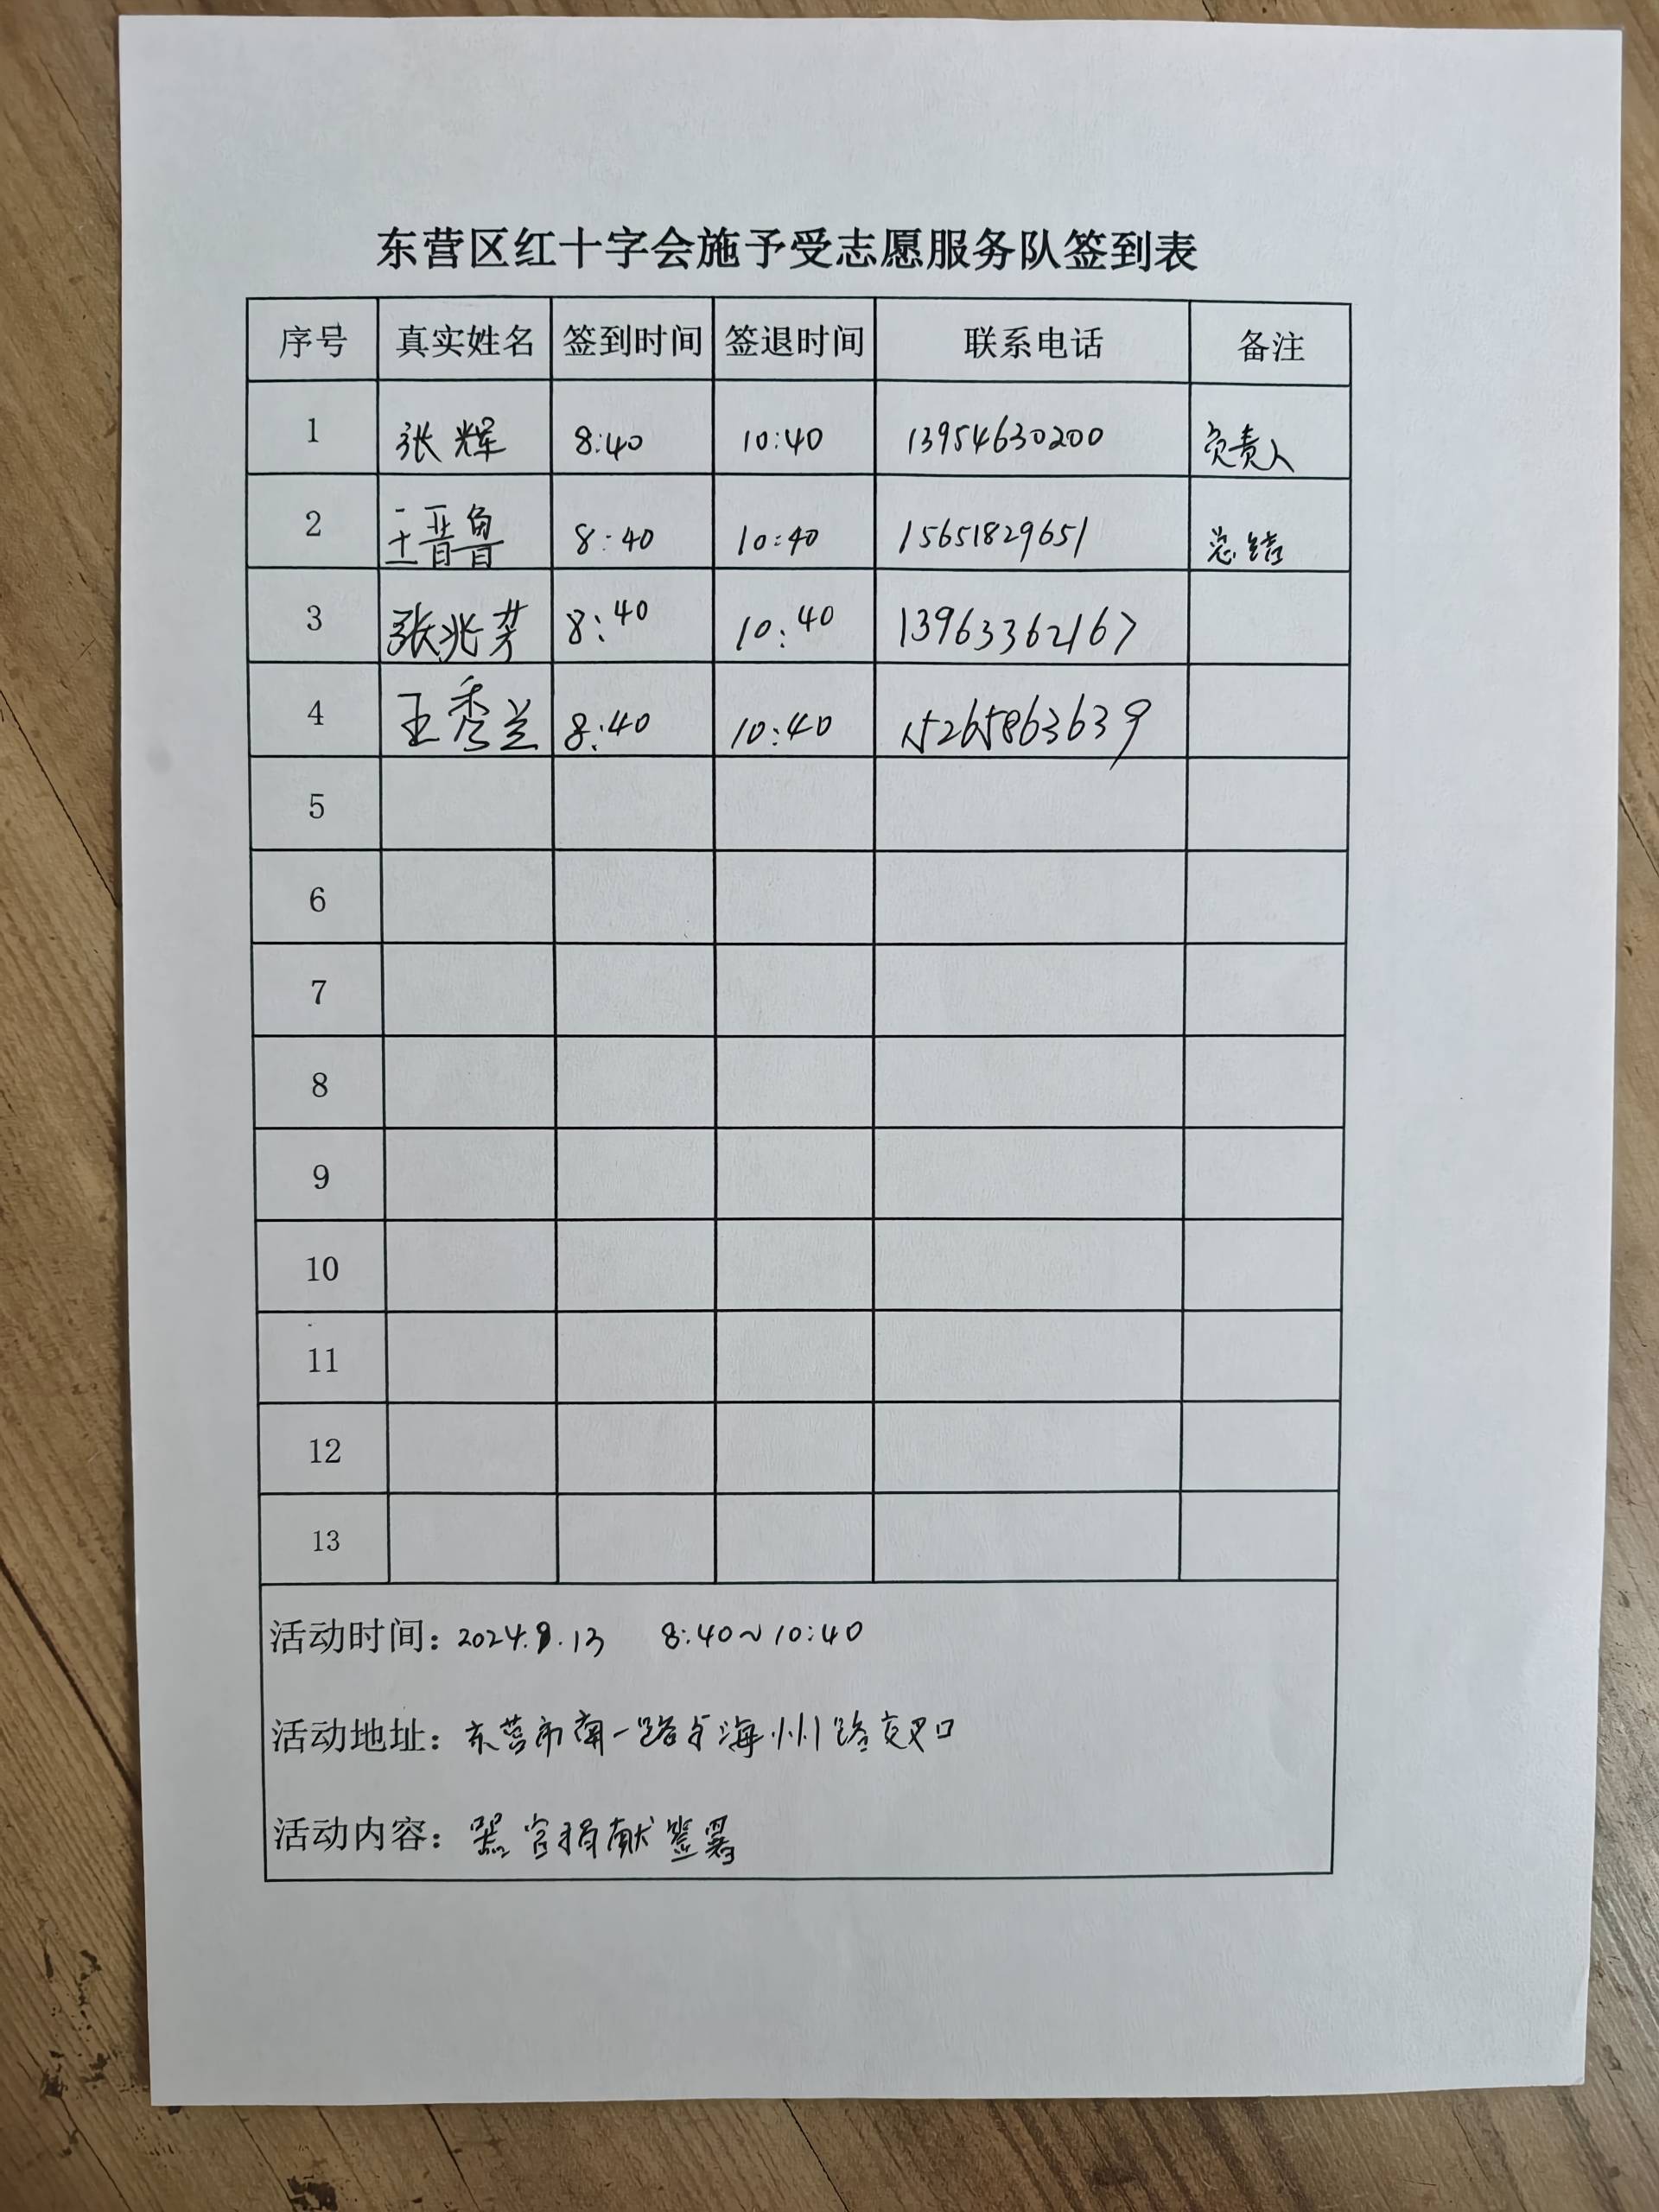 东营区红十字会施予受志愿服务队签到表
序号 真实姓名 签到时间 签退时间 联系电话 备注
1 张辉 8:40 10:40 13954630200 负责人
2 王晋鲁 8:40 10:40 15651829651 总结
3 张兆芳 8:40 10:40 13963362167
4 王秀兰 8:40 10:40 15265863639
5
6
7
8
9
10
11
12
13
活动时间：2024.9.13 8:40~10:40
活动地址：东营市南一路与海州路交叉口
活动内容：器官捐献签署